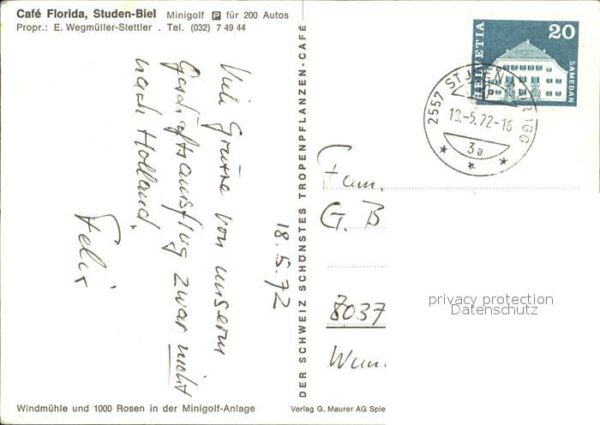 Café Florida, Studen-Biel Minigolf P für 200 Autos
Propr.: E. Wegmüller-Stettler . Tel. (032) 7 49 44
Viele Grüsse von unserm
Geschäftsausflug zwar nicht
nach Holland.
Felix
18.5.72
DER SCHWEIZ SCHÖNSTES TROPENPFLANZEN-CAFÉ
HELVETIA
20
SAMEDAN
2557 STUDEN
-5.72-16
3a
Fam.
G. B
8037
privacy protection
Datenschutz
Windmühle und 1000 Rosen in der Minigolf-Anlage
Verlag G. Maurer AG Spie